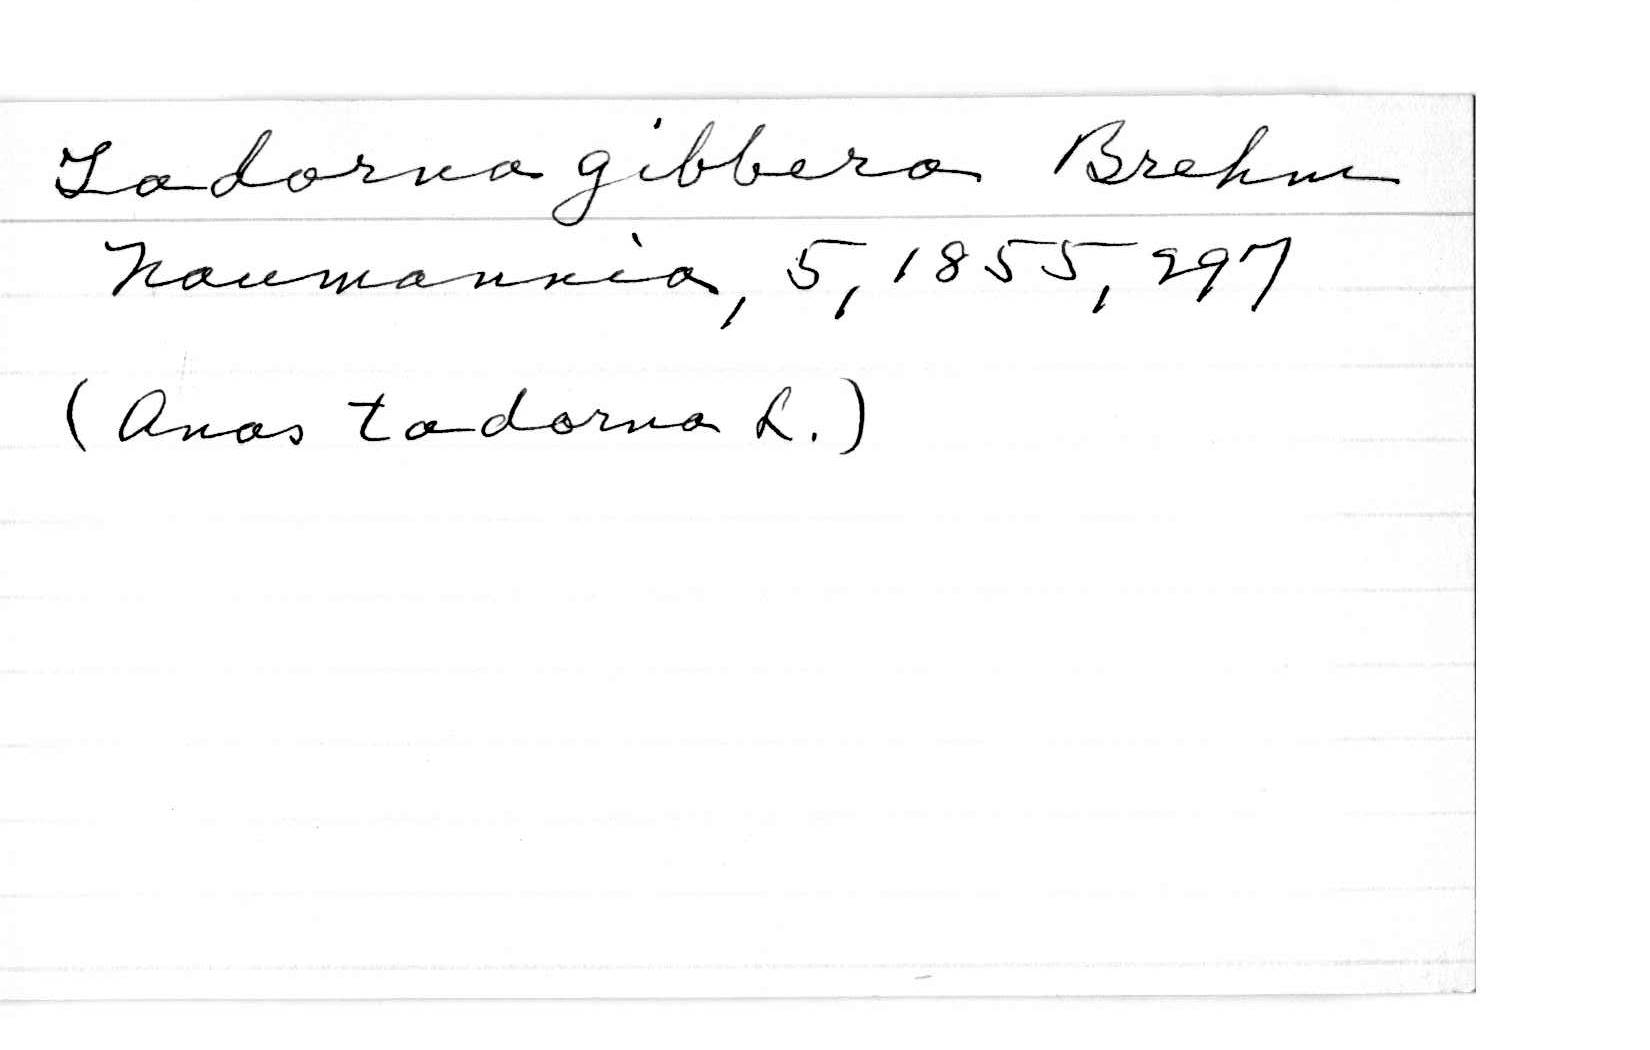 Tadorna gibbera Brehm
Naumannia, 5, 1855, 297
(Anas tadorna L.)